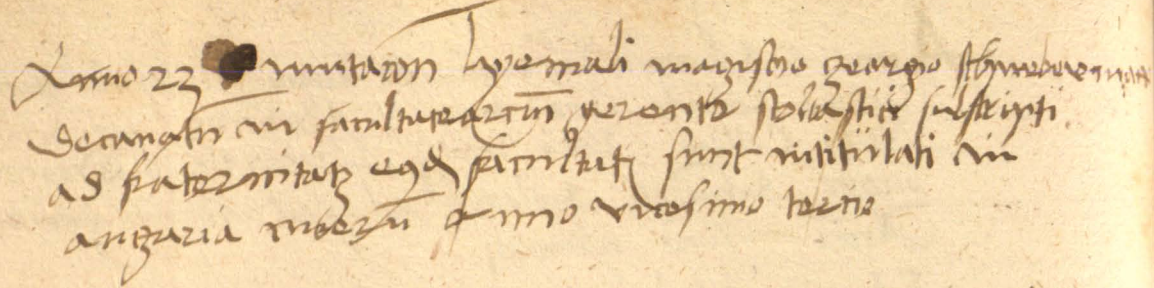 Anno 23 mutacon hyemali magistro georgio
decanatu in facultate arcium gerente scolastici suscripti
ad fraternitatz eiusd facultatz sunt intitulati in
angaria cinerum Anno vicesimo tercio